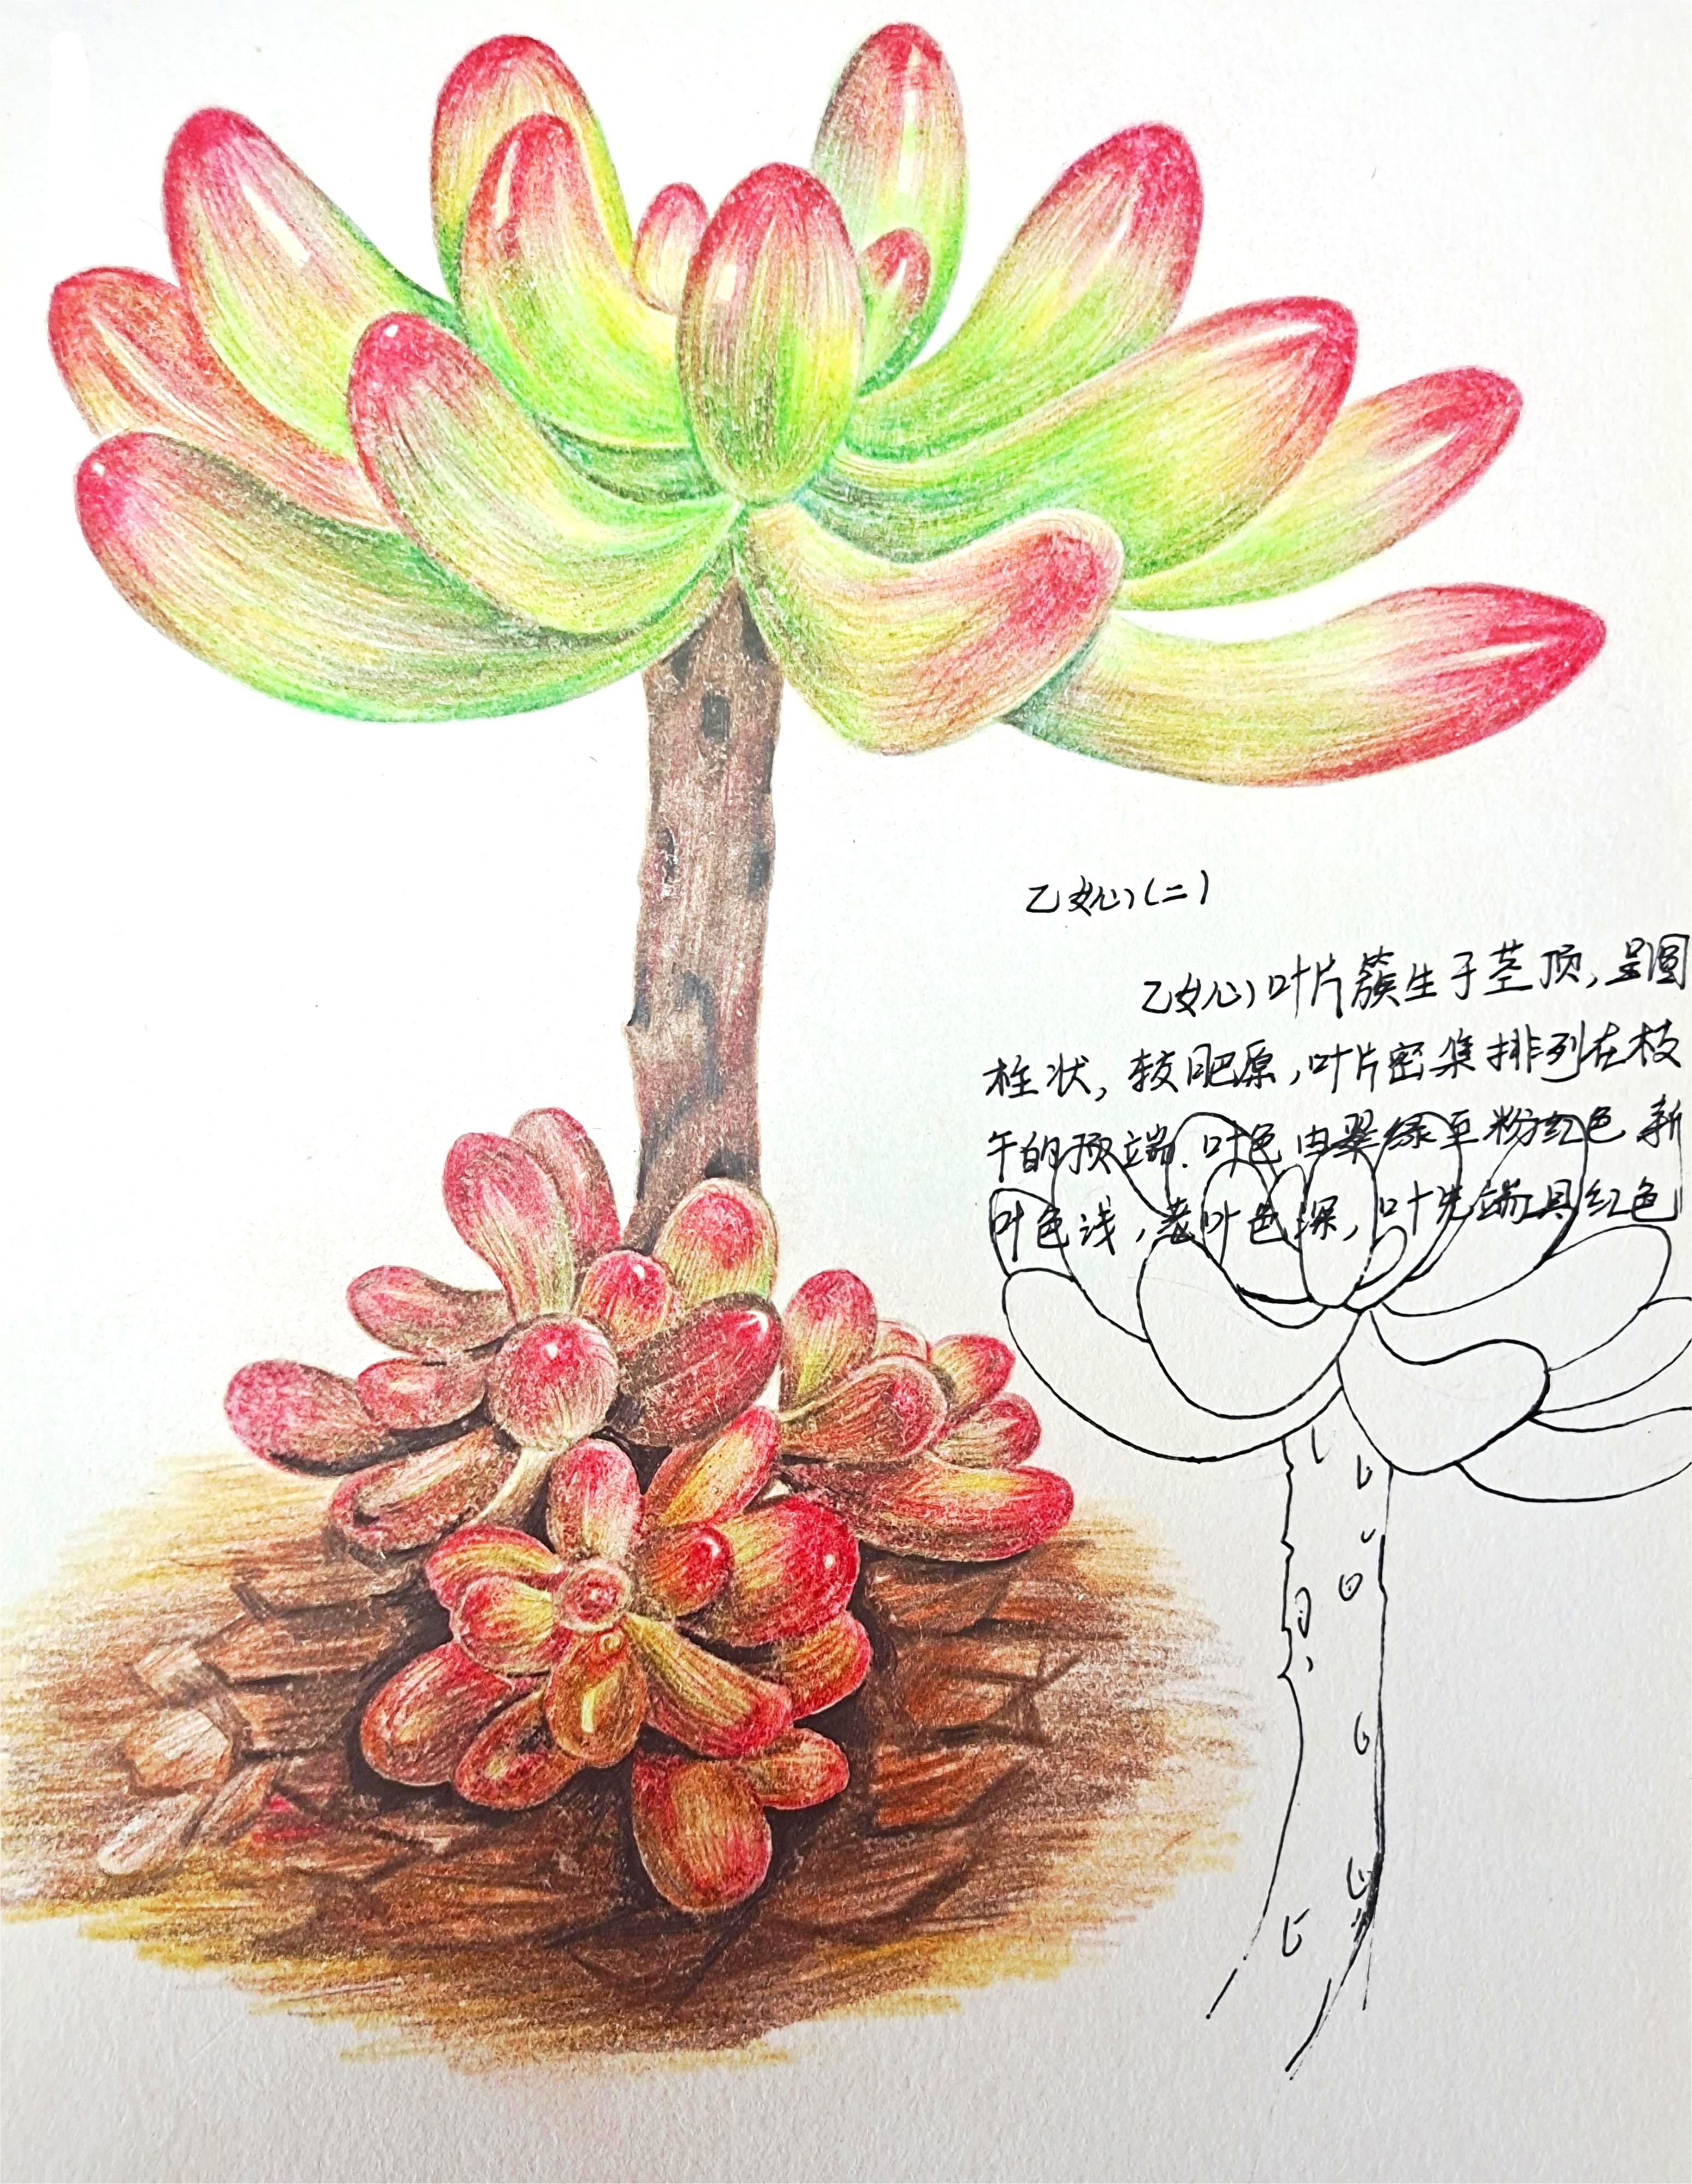 乙女心(二)
乙女心叶片簇生于茎顶,呈圆
柱状,较肥厚,叶片密集排列在枝
干的顶端.叶色由翠绿至粉红色新
叶色浅,老叶色深,叶先端具红色